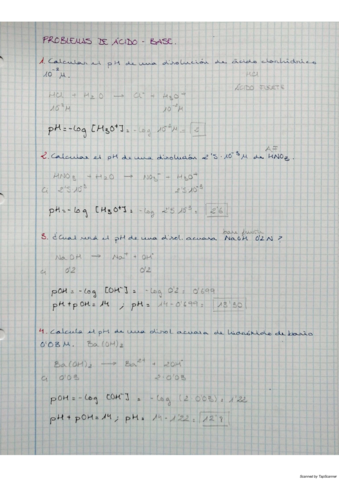 PROBLEMAS DE ÁCIDO - BASE.
1. Calcular el pH de una disolución de ácido clorhídrico
10⁻² M. HCl
ÁCIDO FUERTE
HCl + H₂O → Cl⁻ + H₃O⁺
10⁻² M 10⁻² M
pH = -log [H₃O⁺] = -log 10⁻² M = 2
2. Calcular el pH de una disolución 2'5·10⁻³ M de HNO₃.
HNO₃ + H₂O → NO₃⁻ + H₃O⁺
2'5·10⁻³ 2'5·10⁻³
pH = -log [H₃O⁺] = -log 2'5·10⁻³ = 2'6
base fuerte
3. ¿Cuál será el pH de una disol. acuosa NaOH 0'2 N?
NaOH → Na⁺ + OH⁻
0'2 0'2
pOH = -log [OH⁻] = -log 0'2 = 0'699
pH + pOH = 14 ; pH = 14 - 0'699 = 13'30
4. Calcula el pH de una disol. acuosa de hidróxido de bario
0'03 M. Ba(OH)₂
Ba(OH)₂ → Ba²⁺ + 2OH⁻
0'03 2·0'03
pOH = -log [OH⁻] = -log (2·0'03) = 1'22
pH + pOH = 14 ; pH = 14 - 1'22 =
Scanned by TapScanner